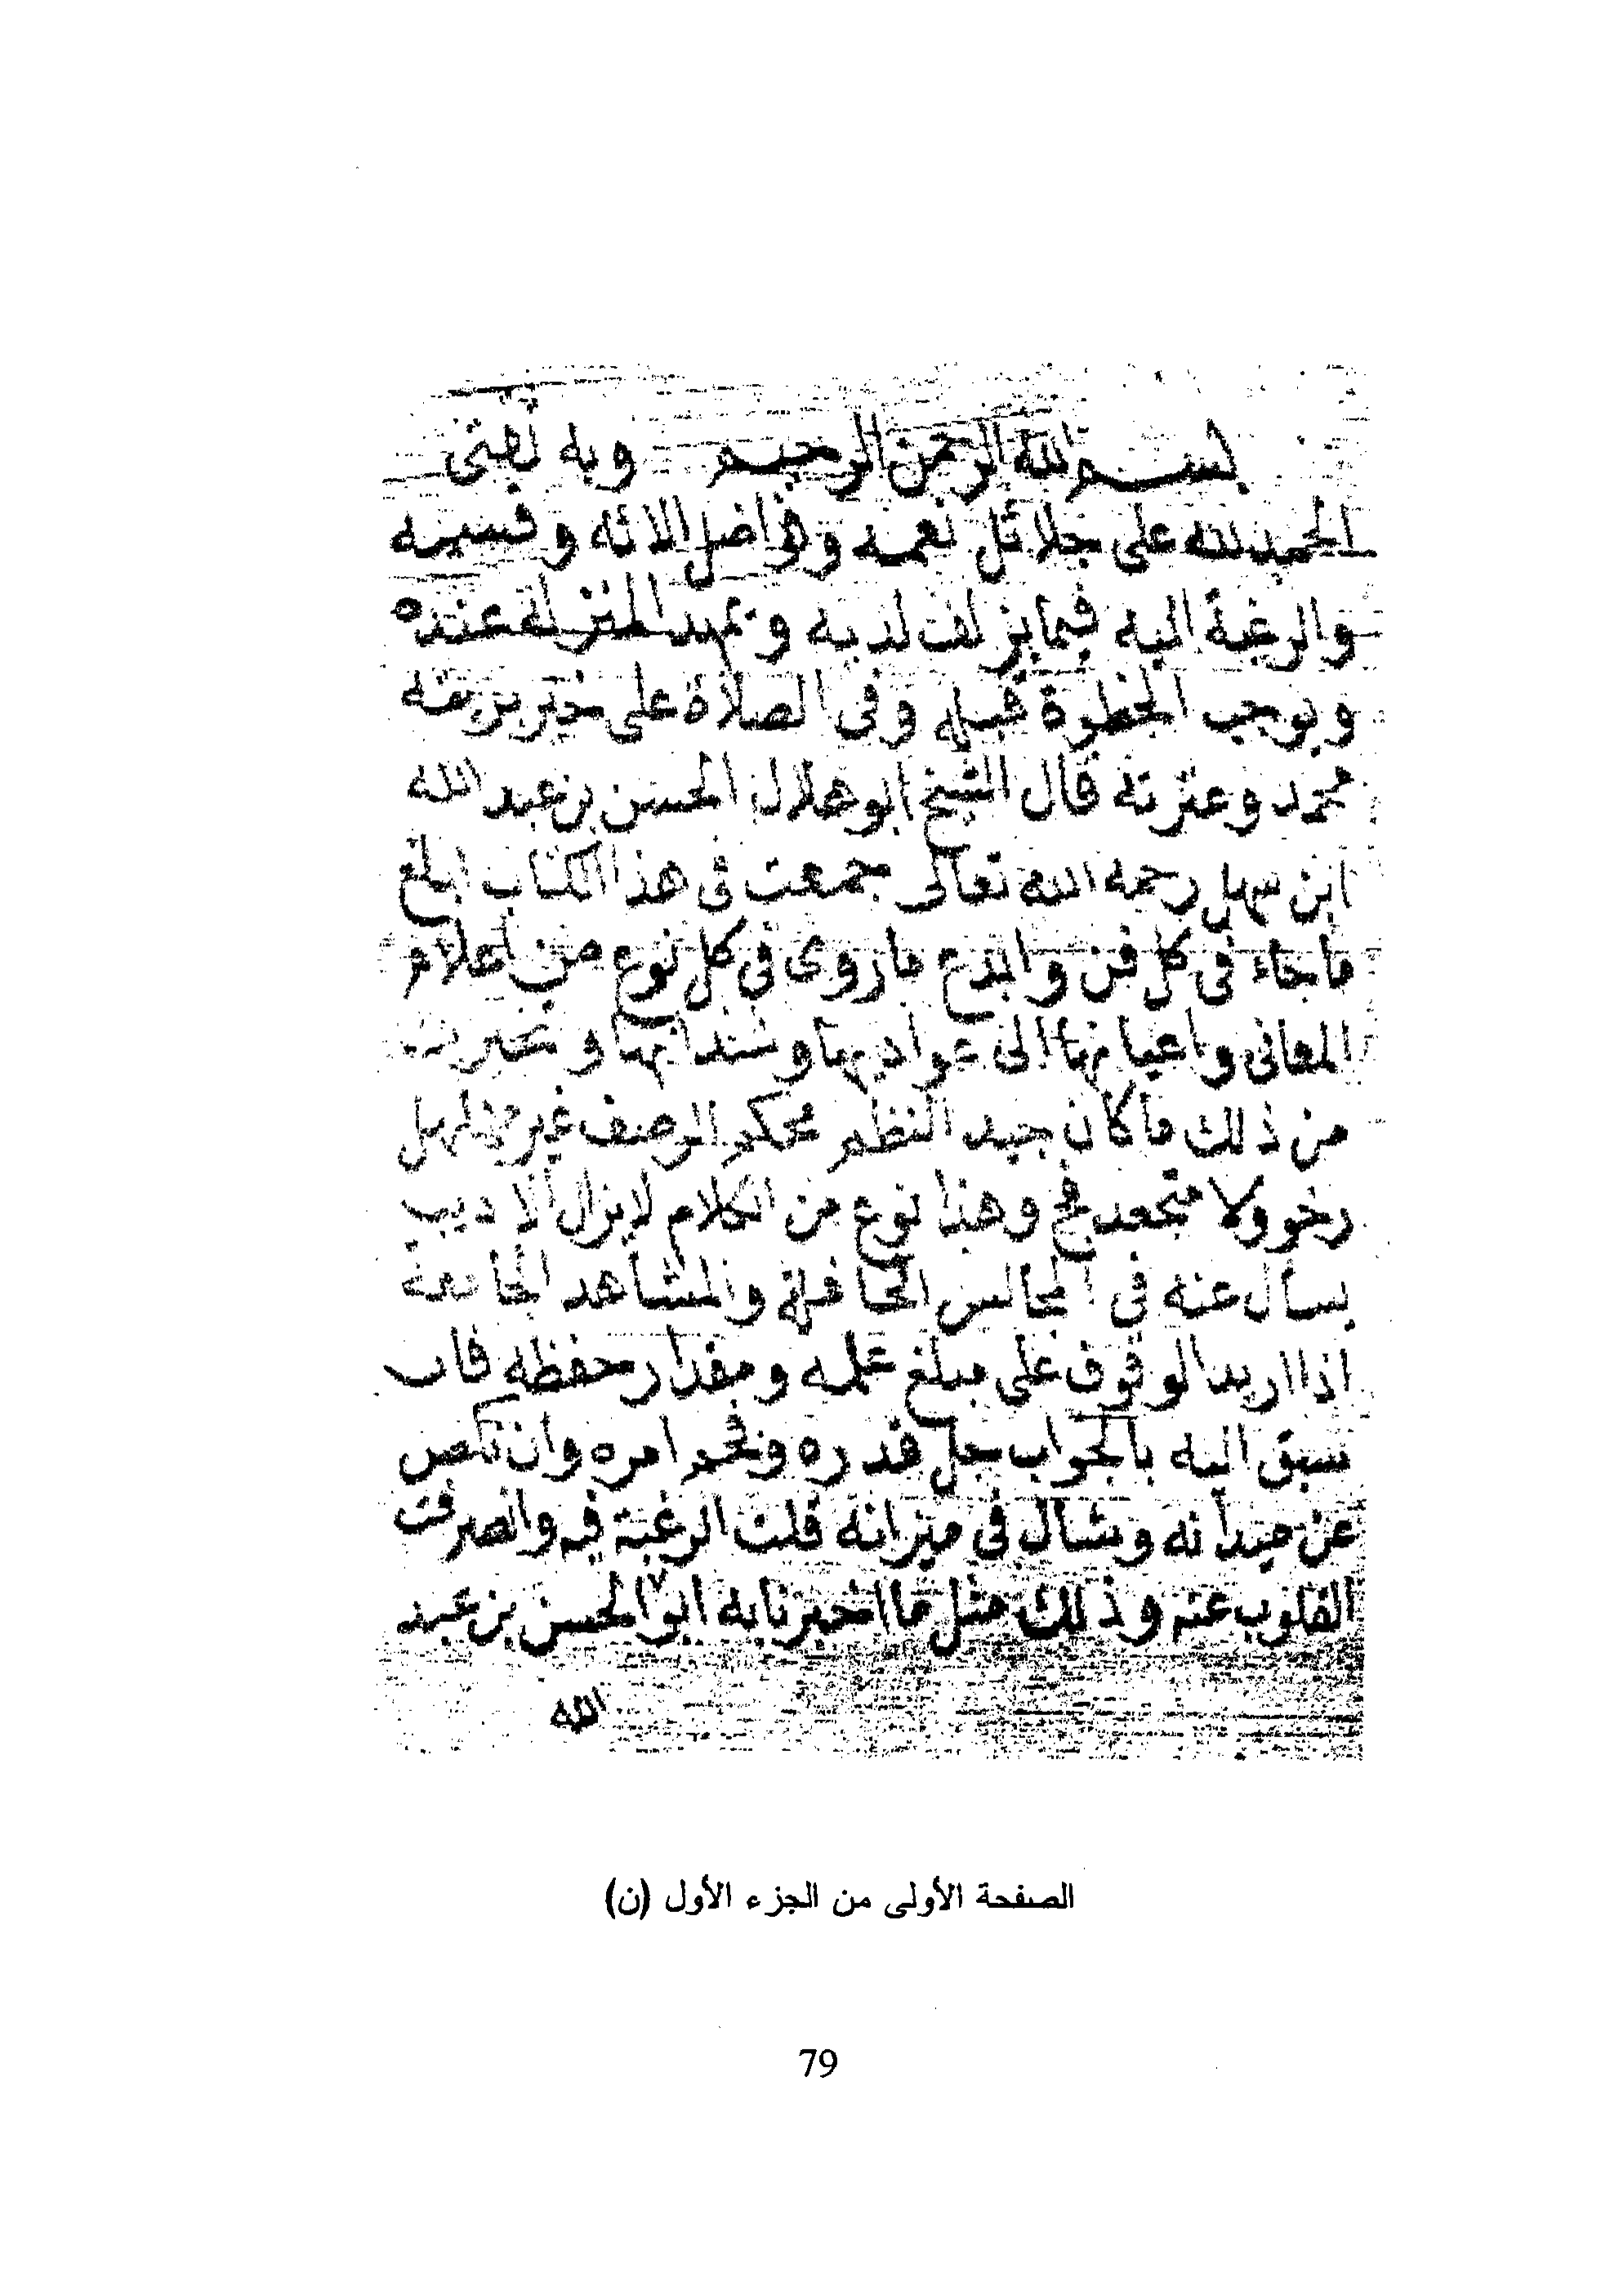 بسم الله الرحمن الرحيم وبه ثقتى
الحمد لله على جلائل نعمه وفواضل الائه وقسمه
والرغبة اليه فيما يزلف لديه ويمهد المنزلة عنده
ويوجب الحظوة قبله وفى الصلاة على خير بريته
محمد وعترته قال الشيخ ابو هلال الحسن بن عبد الله
ابن سهل رحمه الله تعالى جمعت فى هذا الكتاب ابلغ
ما جاء فى كل فن وابدع ما روى فى كل نوع من اعلام
المعانى واعيانها الى عواديها وشذانها وتخيرت
من ذلك ما كان جيد النظم محكم الرصف غير مهلهل
رخو ولا متجعد فج وهذا نوع من الكلام لايزال الاديب
يسأل عنه فى المجالس الحافلة والمشاهد الجامعة
اذا اريد الوقوف على مبلغ علمه ومقدار حفظه فان
سبق اليه بالجواب جل قدره وفخم امره وان نكص
عن ميدانه وشال فى ميزانه قلت الرغبة فيه وانصرفت
القلوب عنه وذلك مثل ما اخبرنا به ابو الحسن بن عبد
الله
الصفحة الأولى من الجزء الأول (ن)
79